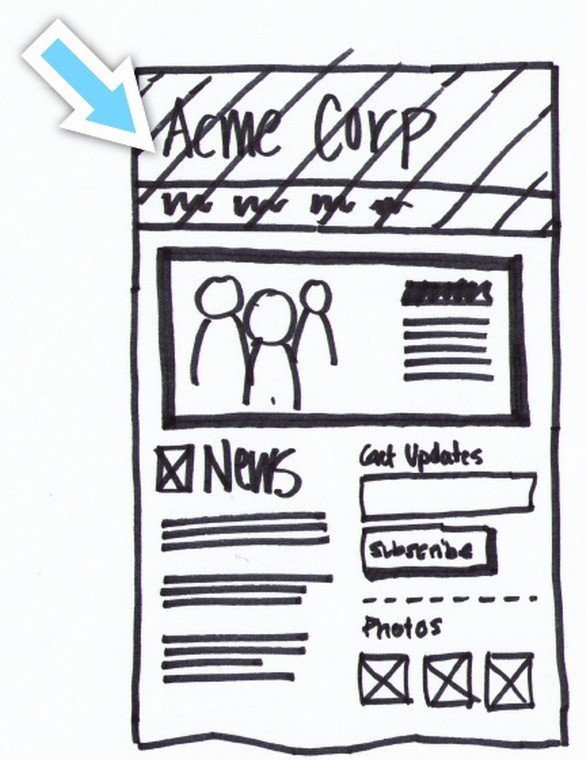 Acme Corp
News
Get Updates
Subscribe
Photos